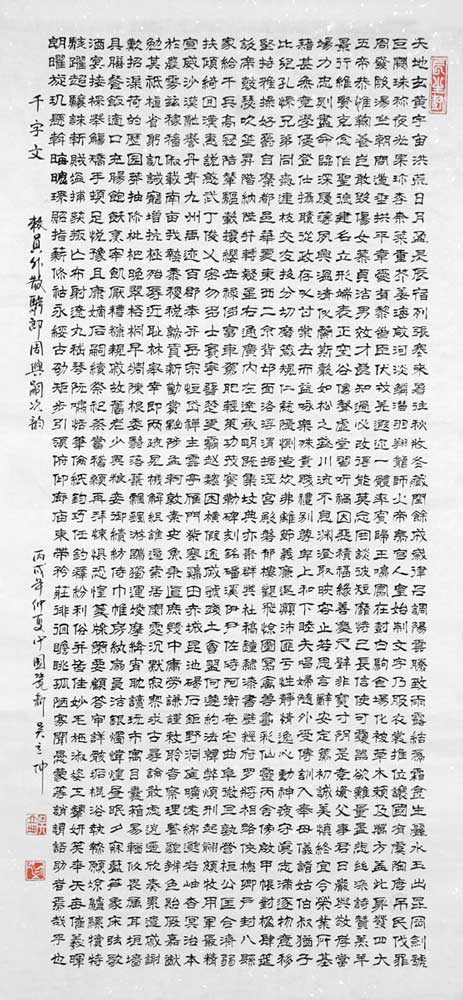 天地玄黃宇宙洪荒日月盈昃辰宿列張寒來暑往秋收冬藏閏餘成歲律召調陽雲騰致雨露結為霜金生麗水玉出崑岡劍號
巨闕珠稱夜光果珍李柰菜重芥薑海鹹河淡鱗潛羽翔龍師火帝鳥官人皇始制文字乃服衣裳推位讓國有虞陶唐弔民伐罪
周發殷湯坐朝問道垂拱平章愛育黎首臣伏戎羌遐邇一體率賓歸王鳴鳳在樹白駒食場化被草木賴及萬方蓋此身髮四大
五常恭惟鞠養豈敢毀傷女慕貞潔男效才良知過必改得能莫忘罔談彼短靡恃己長信使可覆器欲難量墨悲絲染詩讚羔羊
景行維賢克念作聖德建名立形端表正空谷傳聲虛堂習聽禍因惡積福緣善慶尺璧非寶寸陰是競資父事君曰嚴與敬孝當
竭力忠則盡命臨深履薄夙興溫凊似蘭斯馨如松之盛川流不息淵澄取映容止若思言辭安定篤初誠美慎終宜令榮業所基
籍甚無竟學優登仕攝職從政存以甘棠去而益詠樂殊貴賤禮別尊卑上和下睦夫唱婦隨外受傅訓入奉母儀諸姑伯叔猶子
比兒孔懷兄弟同氣連枝交友投分切磨箴規仁慈隱惻造次弗離節義廉退顛沛匪虧性靜情逸心動神疲守真志滿逐物意移
堅持雅操好爵自縻都邑華夏東西二京背邙面洛浮渭據涇宮殿盤鬱樓觀飛驚圖寫禽獸畫彩仙靈丙舍傍啟甲帳對楹肆筵
設席鼓瑟吹笙升階納陛弁轉疑星右通廣內左達承明既集墳典亦聚群英杜稿鍾隸漆書壁經府羅將相路俠槐卿戶封八縣
家給千兵高冠陪輦驅轂振纓世祿侈富車駕肥輕策功茂實勒碑刻銘磻溪伊尹佐時阿衡奄宅曲阜微旦孰營桓公匡合濟弱
扶傾綺回漢惠說感武丁俊乂密勿多士寔寧晉楚更霸趙魏困橫假途滅虢踐土會盟何遵約法韓弊煩刑起翦頗牧用軍最精
宣威沙漠馳譽丹青九州禹跡百郡秦并嶽宗恆岱禪主云亭雁門紫塞雞田赤城昆池碣石鉅野洞庭曠遠綿邈巖岫杳冥治本
於農務茲稼穡俶載南畝我藝黍稷稅熟貢新勸賞黜陟孟軻敦素史魚秉直庶幾中庸勞謙謹敕聆音察理鑒貌辨色貽厥嘉猷
勉其祗植省躬譏誡寵增抗極殆辱近恥林皋幸即兩疏見機解組誰逼索居閒處沉默寂寥求古尋論散慮逍遙欣奏累遣慼謝
歡招渠荷的歷園莽抽條枇杷晚翠梧桐早凋陳根委翳落葉飄颻游鵾獨運凌摩絳霄耽讀玩市寓目囊箱易輶攸畏屬耳垣牆
具膳餐飯適口充腸飽飫烹宰飢厭糟糠親戚故舊老少異糧妾御績紡侍巾帷房紈扇圓潔銀燭煒煌晝眠夕寐藍筍象床弦歌
酒宴接杯舉觴矯手頓足悅豫且康嫡后嗣續祭祀烝嘗稽顙再拜悚懼恐惶箋牒簡要顧答審詳骸垢想浴執熱願涼驢騾犢特
駭躍超驤誅斬賊盜捕獲叛亡布射遼丸嵇琴阮嘯恬筆倫紙鈞巧任釣釋紛利俗並皆佳妙毛施淑姿工顰妍笑年矢每催羲暉
朗曜旋璣懸斡晦魄環照指薪修祜永綏吉劭矩步引領俯仰廊廟束帶矜莊徘徊瞻眺孤陋寡聞愚蒙等誚謂語助者焉哉乎也
千字文
梁員外散騎郎周興嗣次韻
丙戌年仲夏中國瓷都 吳立坤